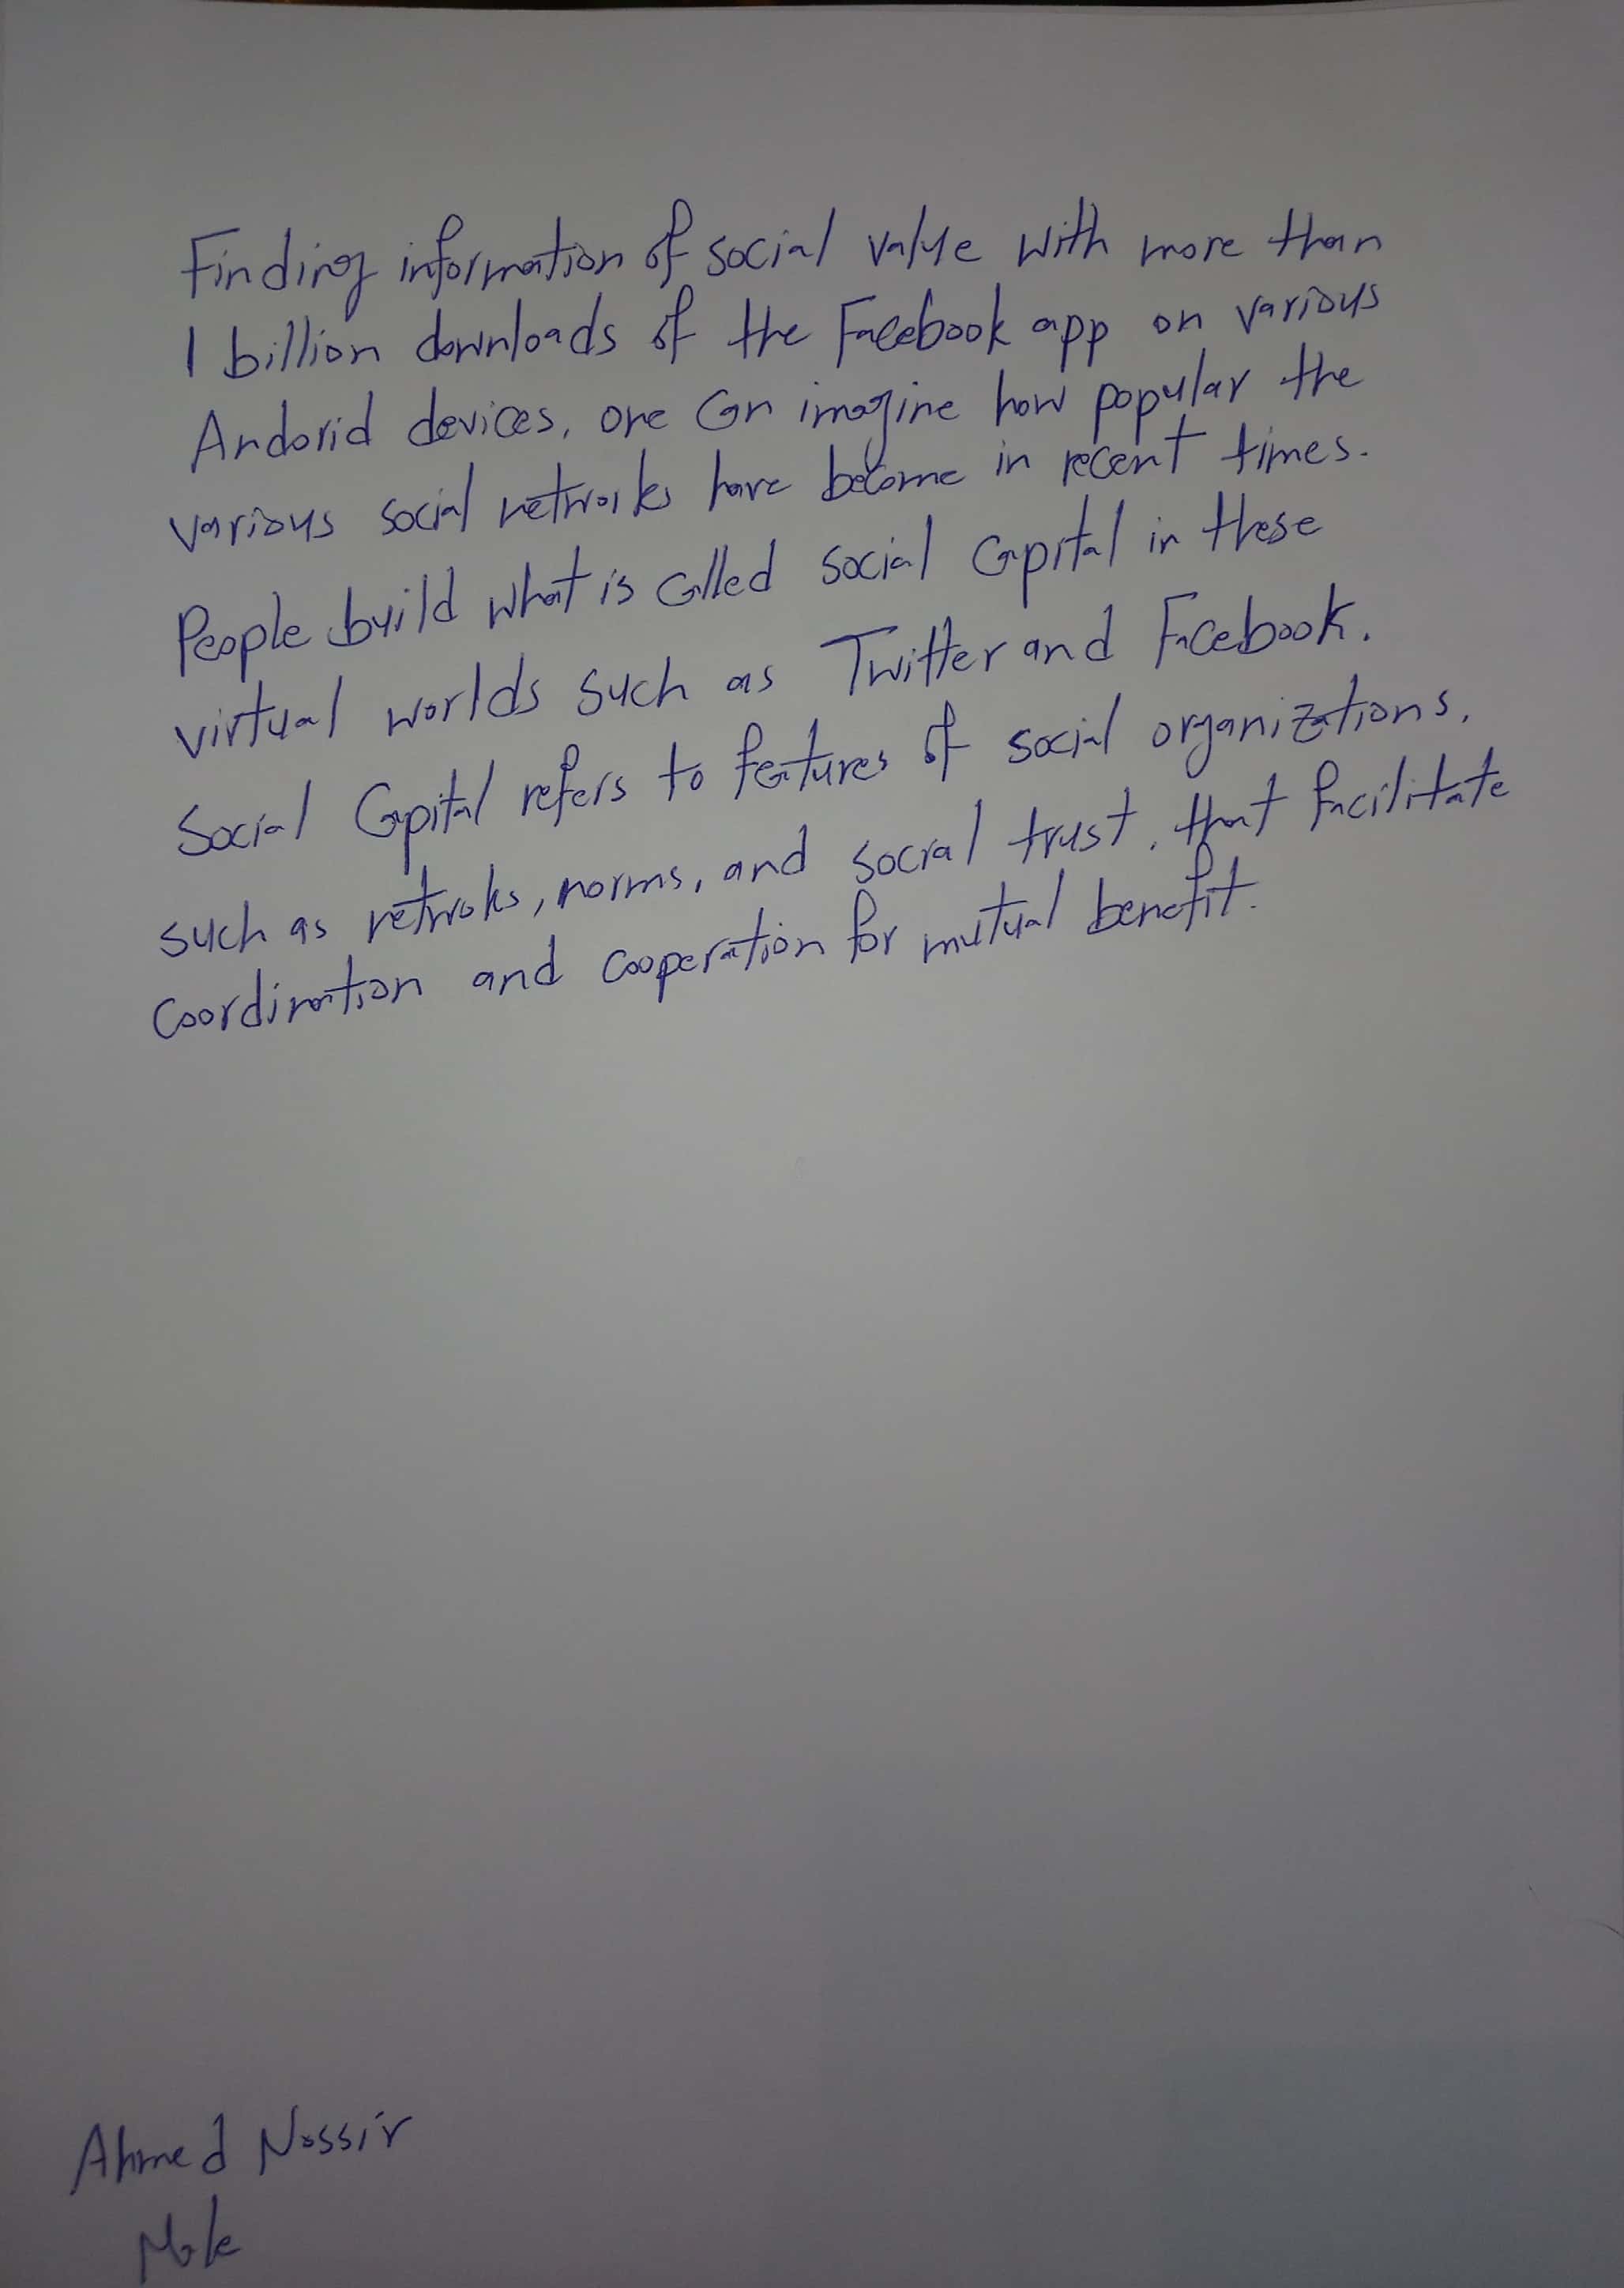 Finding information of social value with more than
1 billion downloads of the Facebook app on various
Andorid devices, one can imagine how popular the
various social networks have become in recent times.
People build what is called social capital in these
virtual worlds such as Twitter and Facebook.
Social Capital refers to features of social organizations,
such as netwoks, norms, and social trust, that facilitate
coordination and cooperation for mutual benefit.
Ahmed Nossir
Male